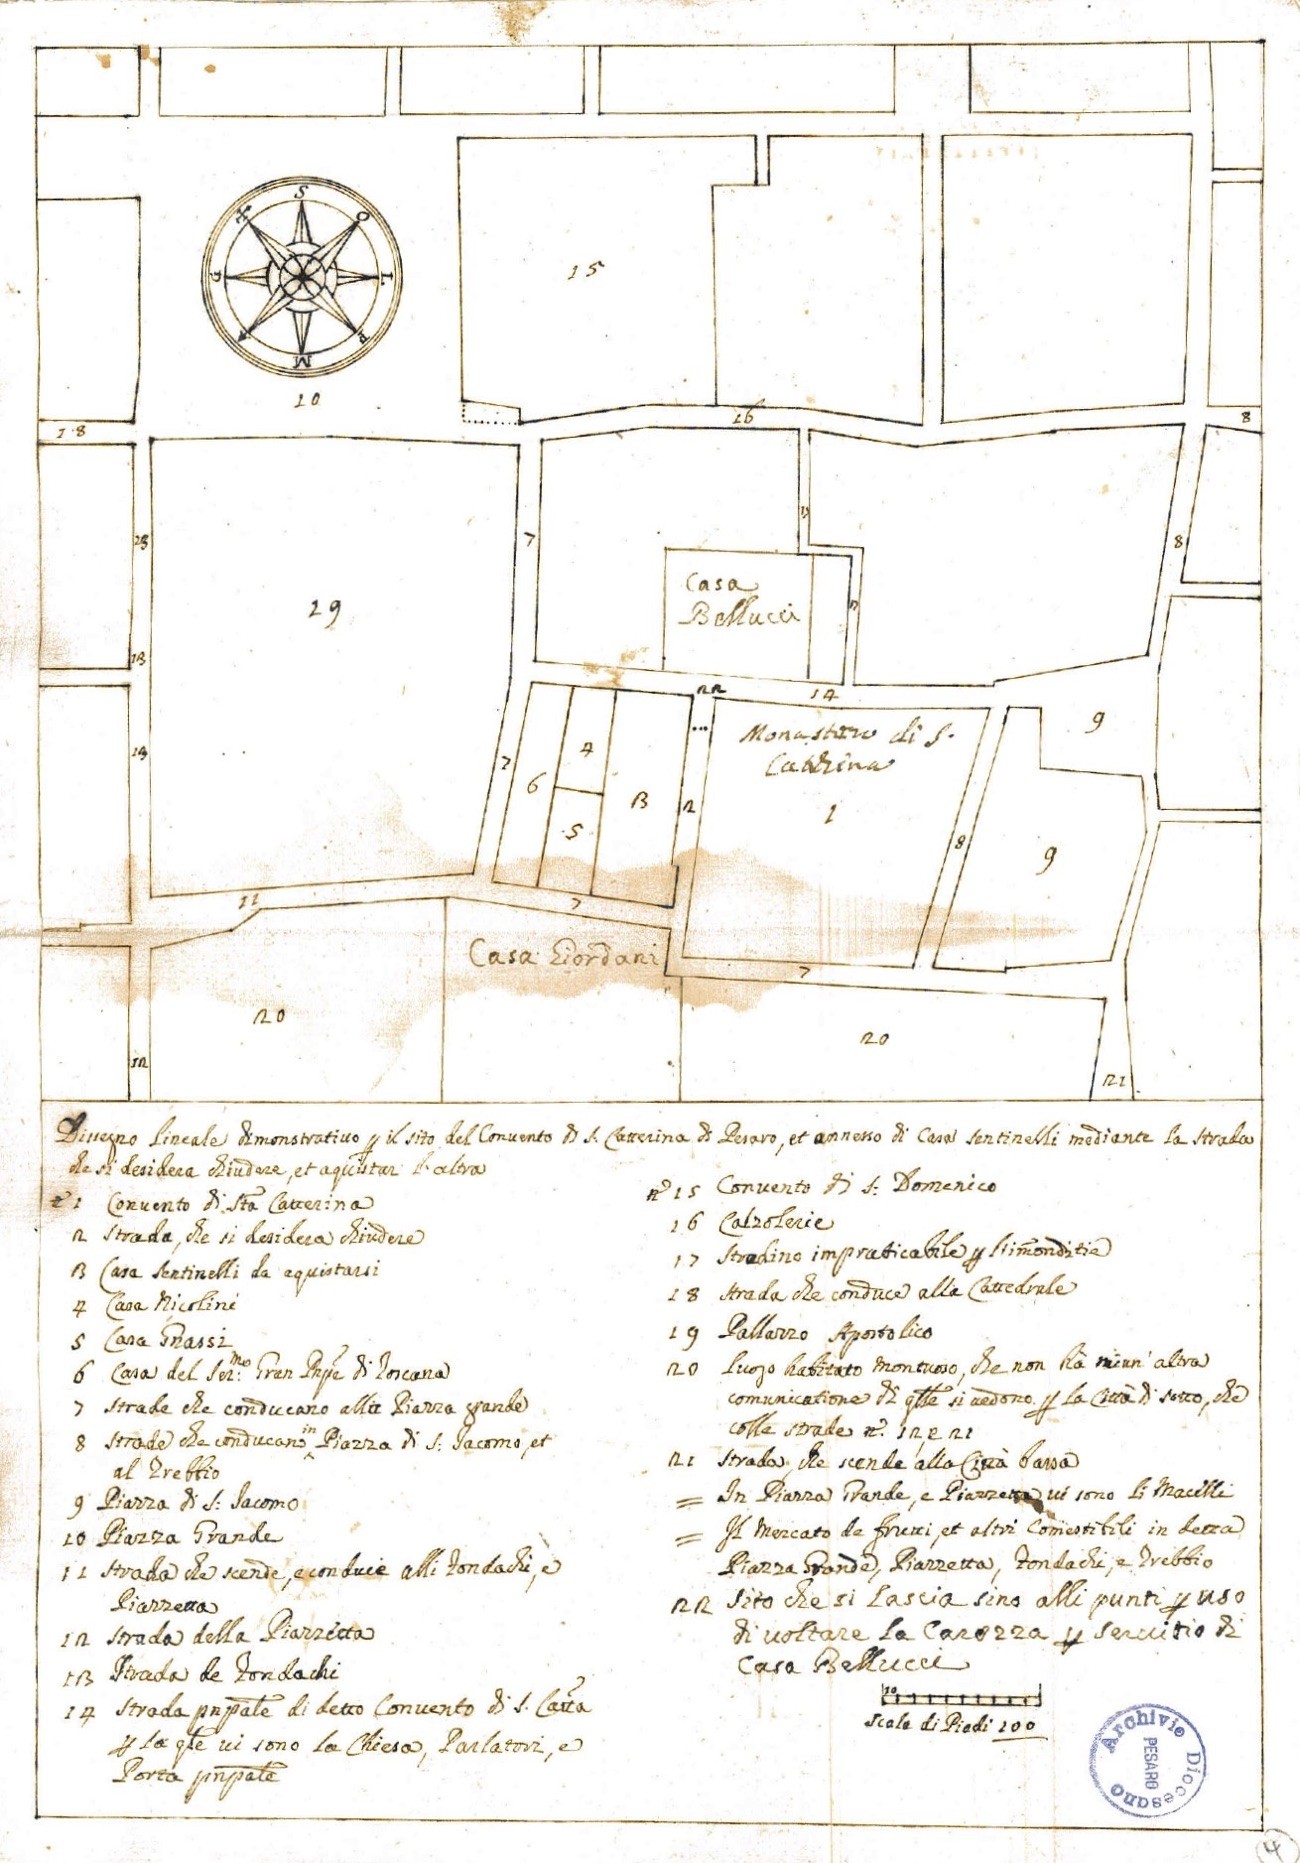 S
O
L
P
M
G
15
10
18
16
8
13
7
17
19
Casa
Bellucci
8
17
13
22
14
9
Monastero di S.
Catterina
14
7
6
4
3
2
1
5
8
9
11
7
Casa Giordani
7
20
20
12
21
Dissegno lineale dimonstrativo p il sito del Convento di S. Catterina di Pesaro, et annesso di Casa Sentinelli mediante la strada
che si desidera chiudere, et aquistar l'altra
n.º 1 Convento di Sta Catterina
2 Strada, che si desidera chiudere
3 Casa Sentinelli da aquistarsi
4 Casa Nicolini
5 Casa Grassi
6 Casa del Ser.mo Gran Pnpe di Toscana
7 Strade che conducano alla Piazza grande
8 Strade che conducano in Piazza di S. Jacomo, et
al Trebbio
9 Piazza di S. Jacomo
10 Piazza Grande
11 Strada che scende, e conduce alli Fondachi, e
Piazzetta
12 Strada della Piazzetta
13 Strada de Fondachi
14 Strada pnpale di detto Convento di S. Catta
p la qle vi sono la Chiesa, Parlatori, e
Porta pnpale
n.º 15 Convento di S. Domenico
16 Calzolerie
17 Stradino impraticabile p l'immonditie
18 Strada che conduce alla Cattedrale
19 Pallazzo Apostolico
20 Luogo habitato montuoso, che non hà niun' altra
comunicatione di qlle si vedono p la Città di sotto, che
colle strade n.º 12, e 21
21 Strada, che scende alla Città bassa
= In Piazza Grande, e Piazzetta vi sono li Macelli
= Il Mercato de frutti, et altri Comestibili in detta
Piazza Grande, Piazzetta, Fondachi, e Trebbio
22 Sito che si lascia sino alli punti p uso
di voltare la Carozza p servitio di
Casa Bellucci
10
Scala di Piedi 100
Archivio Diocesano
PESARO
4